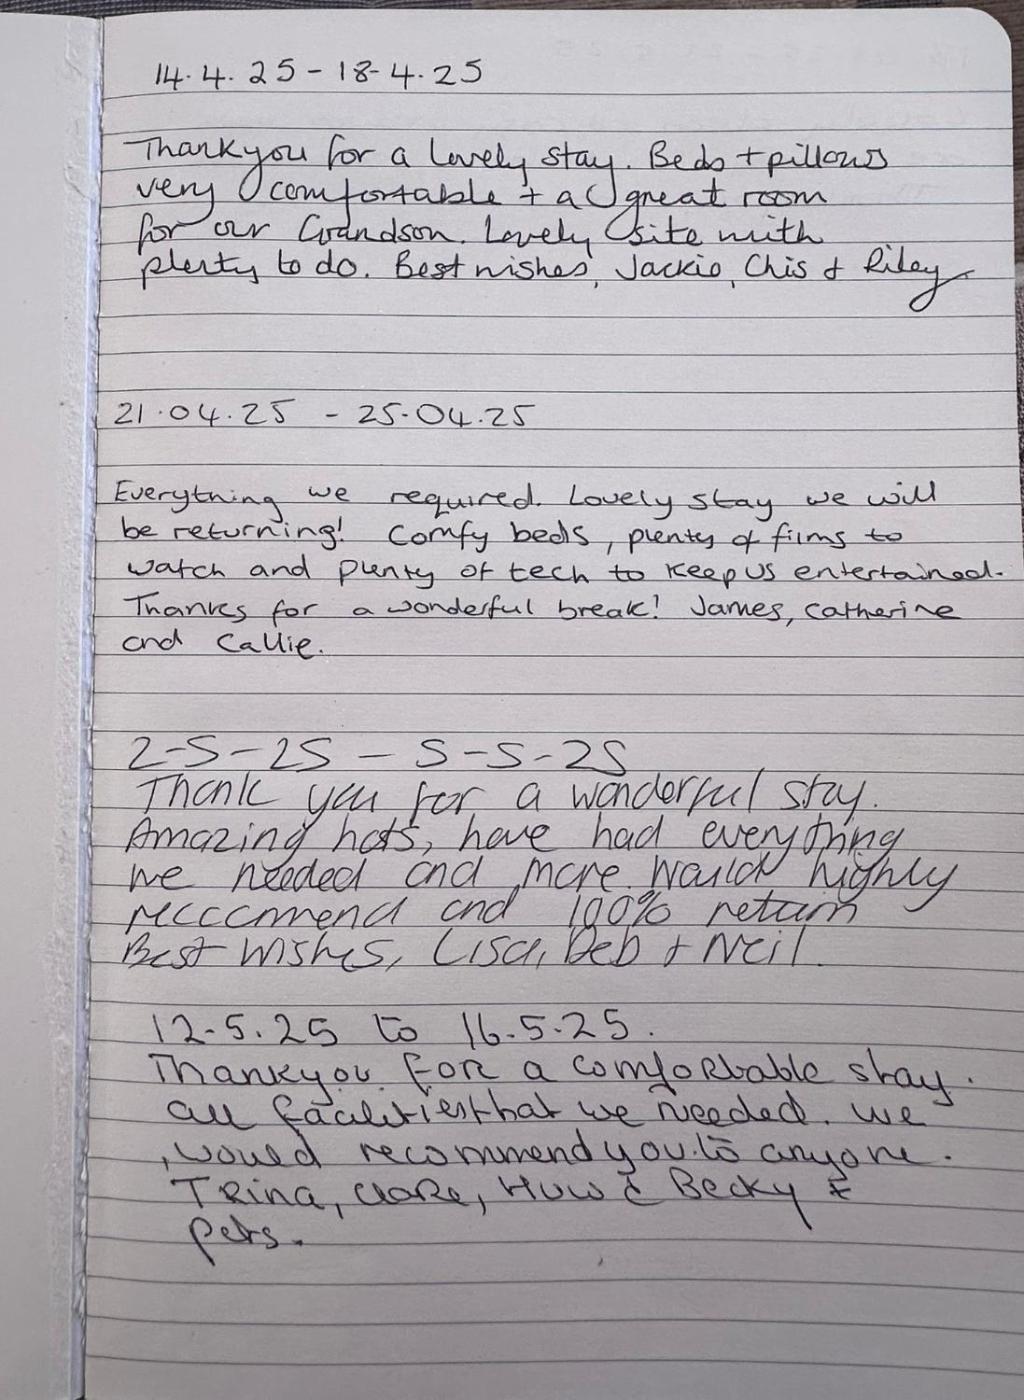 14.4.25 - 18-4.25
Thankyou for a lovely stay. Beds + pillows
very comfortable + a great room
for our Grandson. Lovely site with
plenty to do. Best wishes, Jackie, Chis & Riley
21.04.25 - 25.04.25
Everything we required. Lovely stay we will
be returning! Comfy beds, plenty of films to
watch and plenty of tech to keep us entertained.
Thanks for a wonderful break! James, Catherine
and Callie.
2-5-25 - 5-5-25
Thank you for a wonderful stay.
Amazing hosts, have had everything
we needed and more. Would highly
reccomend and 100% return
Best Wishes, Lisa, Deb + Neil.
12-5.25 to 16.5.25.
Thankyou for a comfortable stay.
all facilities that we needed. we
would recommend you to anyone.
Trina, Clare, Huw & Becky &
pets.